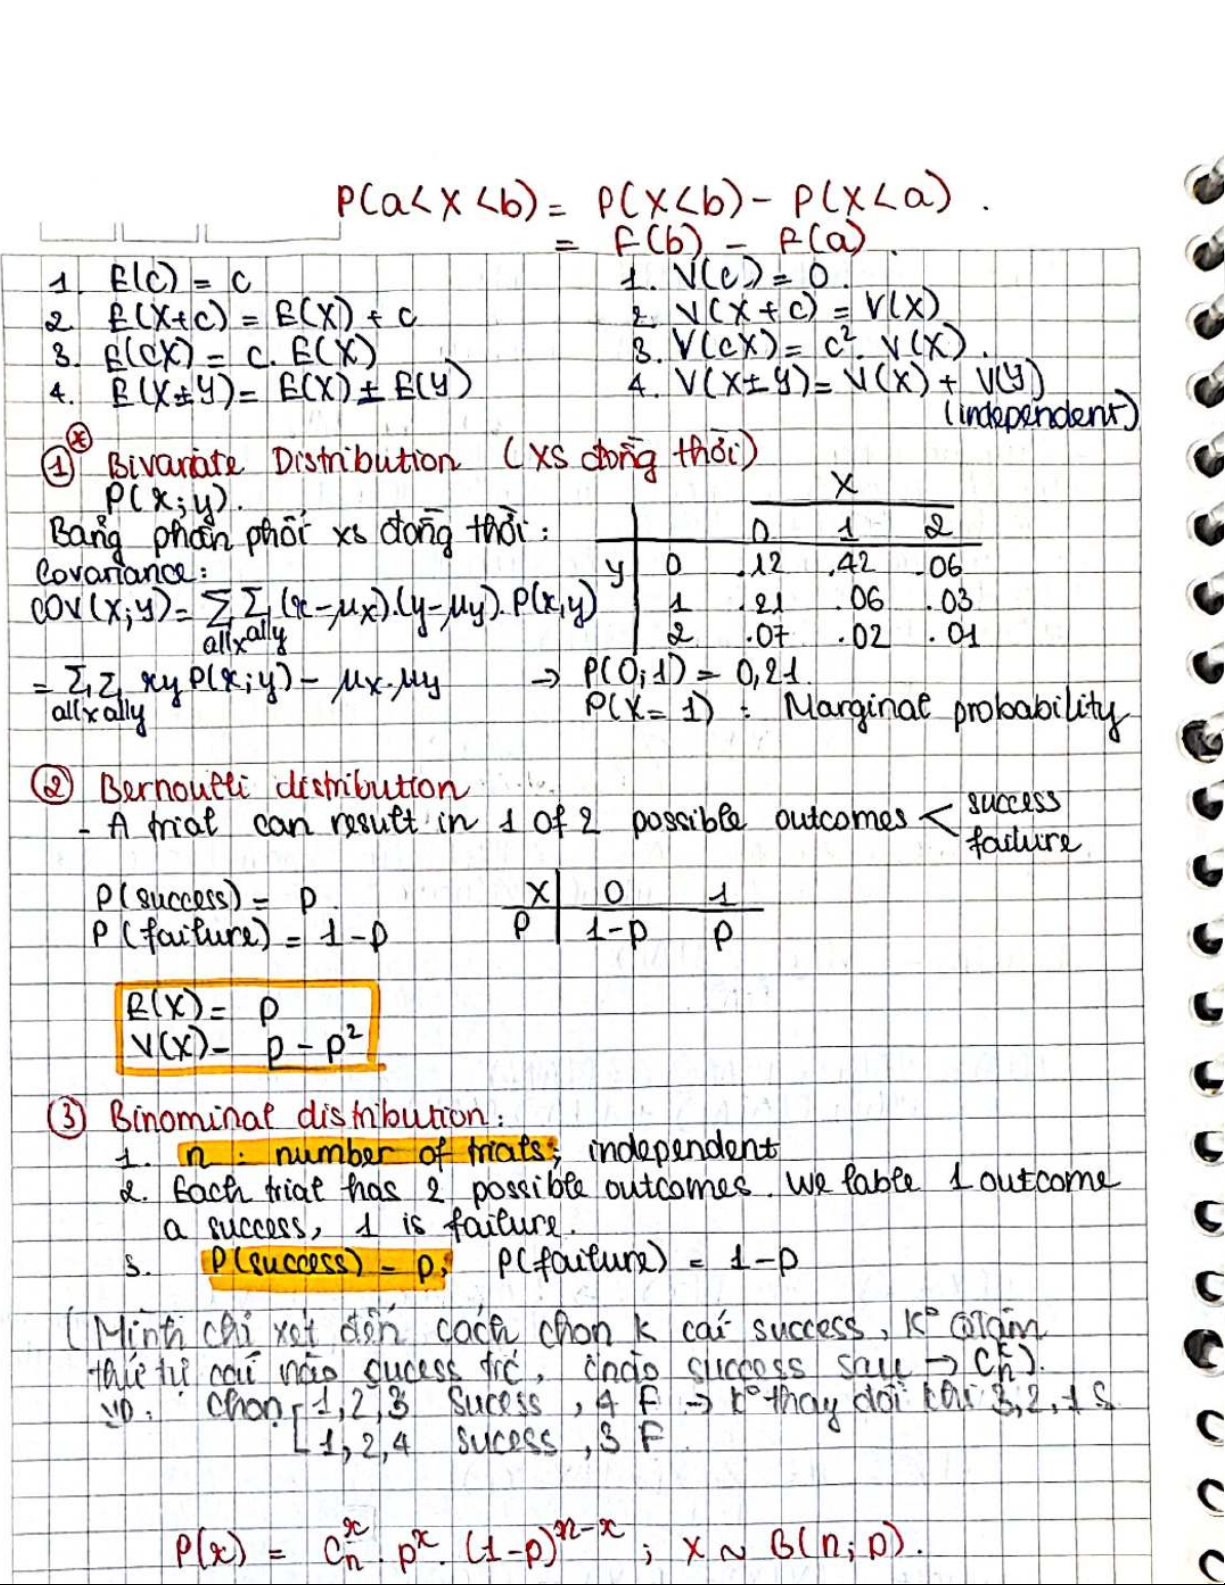 P(a<X<b) = P(X<b) - P(X<a).
= F(b) - F(a).
1. E(c) = c
2. E(X+c) = E(X) + c
3. E(cX) = c. E(X)
4. E(X±Y) = E(X) ± E(Y)
1. V(c) = 0.
2. V(X+c) = V(X)
3. V(cX) = c². V(X).
4. V(X±Y) = V(X) + V(Y)
(independent)
① * Bivariate Distribution (XS đồng thời)
P(x;y).
Bảng phân phối xs đồng thời:
X
0 1 2
y 0 .12 .42 .06
1 .21 .06 .03
2 .07 .02 .01
Covariance:
COV(x;y) = Σ Σ (x-μx).(y-μy). P(x,y)
all x all y
= Σ Σ xy P(x;y) - μx.μy
all x all y
→ P(0;1) = 0,21.
P(X=1) : Marginal probability
② Bernoulli distribution
- A trial can result in 1 of 2 possible outcomes < success
failure
P(success) = p.
P(failure) = 1-p
X 0 1
P 1-p p
E(X) = p
V(X) = p - p²
③ Binominal distribution:
1. n : number of trials; independent
2. Each trial has 2 possible outcomes. We lable 1 outcome
a success, 1 is failure.
3. P(success) = p, P(failure) = 1-p
(Mình chỉ xét đến cách chọn k cái success, k° quan tâm
thứ tự cái nào sucess trc, success sau → Cⁿₖ).
VD: chọn 1,2,3 Sucess, 4 F → k° thay đổi 3,2,1 S
1,2,4 sucess, 3 F
P(x) = Cₙˣ . pˣ. (1-p)ⁿ⁻ˣ ; X ~ B(n;p).